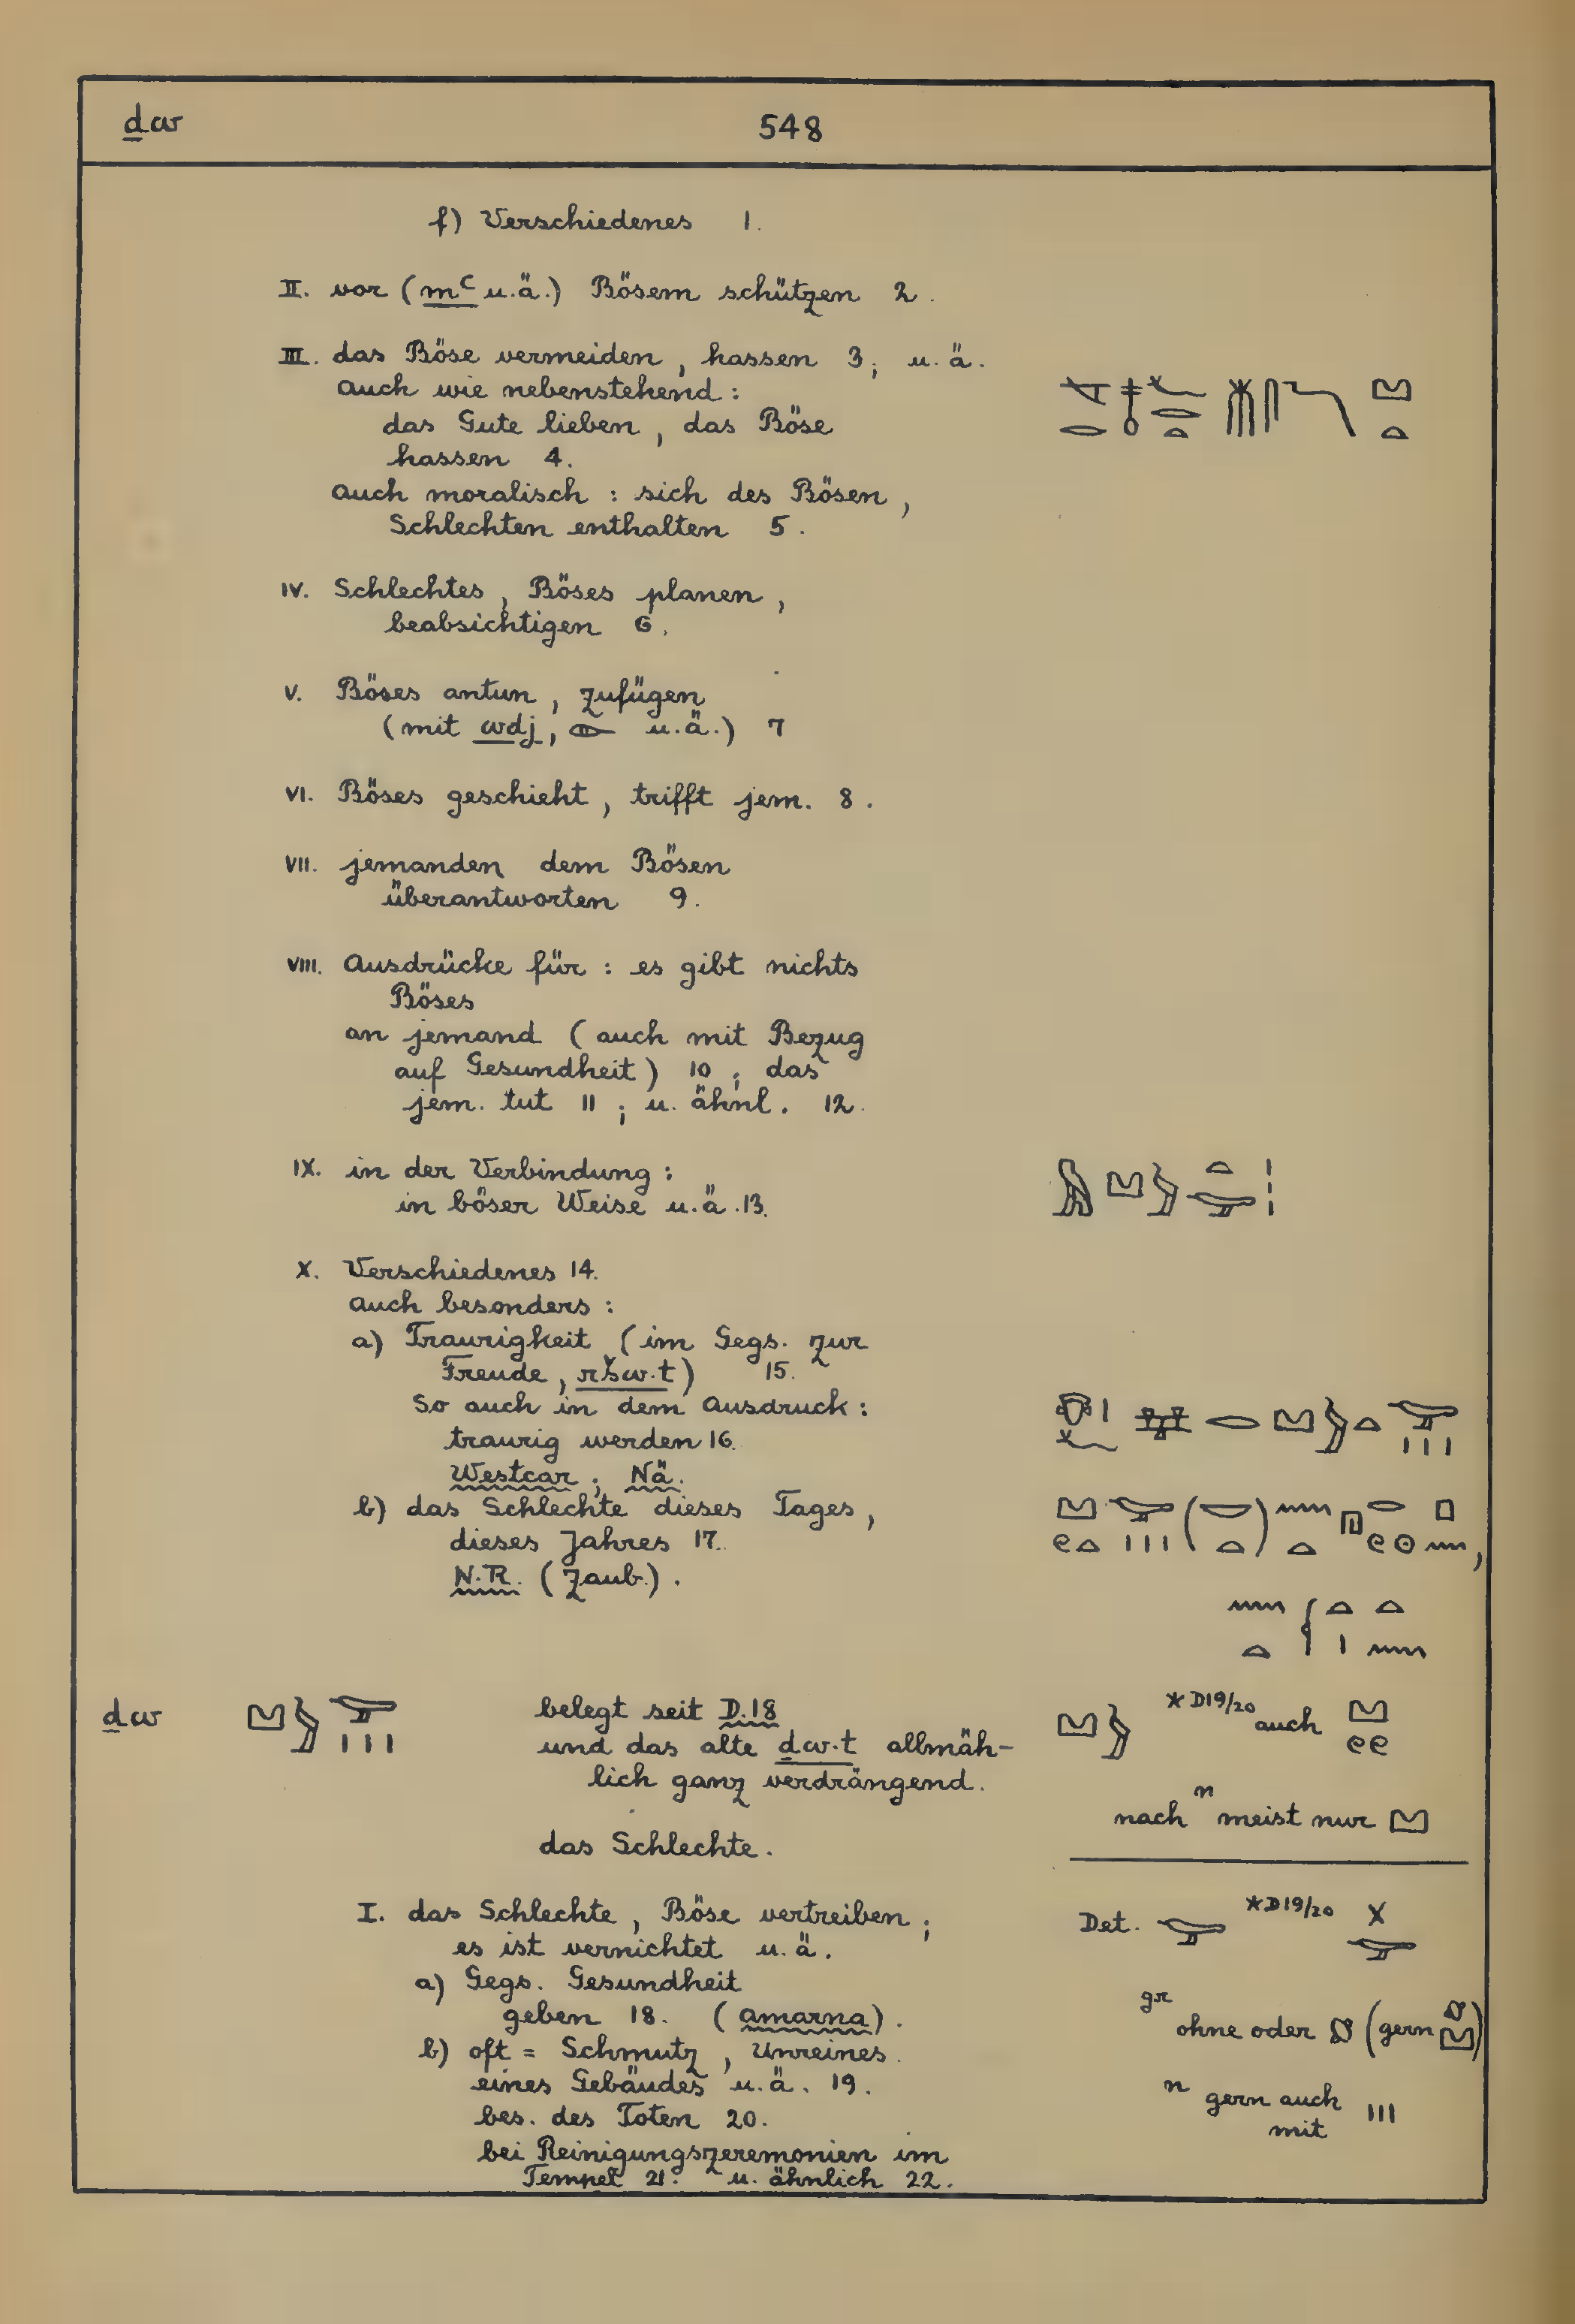 ḏw
548
f) Verschiedenes 1.
II. vor (mꜥ u.ä.) Bösem schützen 2.
III. das Böse vermeiden, hassen 3; u.ä.
auch wie nebenstehend:
das Gute lieben, das Böse
hassen 4.
auch moralisch: sich des Bösen,
Schlechten enthalten 5.
IV. Schlechtes, Böses planen,
beabsichtigen 6.
V. Böses antun, zufügen
(mit wdj, 𓁹 u.ä.) 7
VI. Böses geschieht, trifft jem. 8.
VII. jemanden dem Bösen
überantworten 9.
VIII. Ausdrücke für: es gibt nichts
Böses
an jemand (auch mit Bezug
auf Gesundheit) 10; das
jem. tut 11; u. ähnl. 12.
IX. in der Verbindung:
in böser Weise u.ä. 13.
X. Verschiedenes 14.
auch besonders:
a) Traurigkeit (im Gegs. zur
Freude, ršw.t) 15.
So auch in dem Ausdruck:
traurig werden 16.
Westcar; Nä.
b) das Schlechte dieses Tages,
dieses Jahres 17.
N.R. (Zaub.).
ḏw 𓈋𓃀𓅪𓏥
belegt seit D.18
und das alte ḏw.t allmäh-
lich ganz verdrängend.
das Schlechte.
I. das Schlechte, Böse vertreiben;
es ist vernichtet u.ä.
a) Gegs. Gesundheit
geben 18. (Amarna).
b) oft = Schmutz, Unreines
eines Gebäudes u.ä. 19.
bes. des Toten 20.
bei Reinigungszeremonien im
Tempel 21. u. ähnlich 22.
𓈋𓃀 *D19/20 auch 𓈋𓏲𓏲
nach n meist nur 𓈋
Det. 𓅪 *D19/20 𓏴𓅪
gr ohne oder (gern
n gern auch
mit III